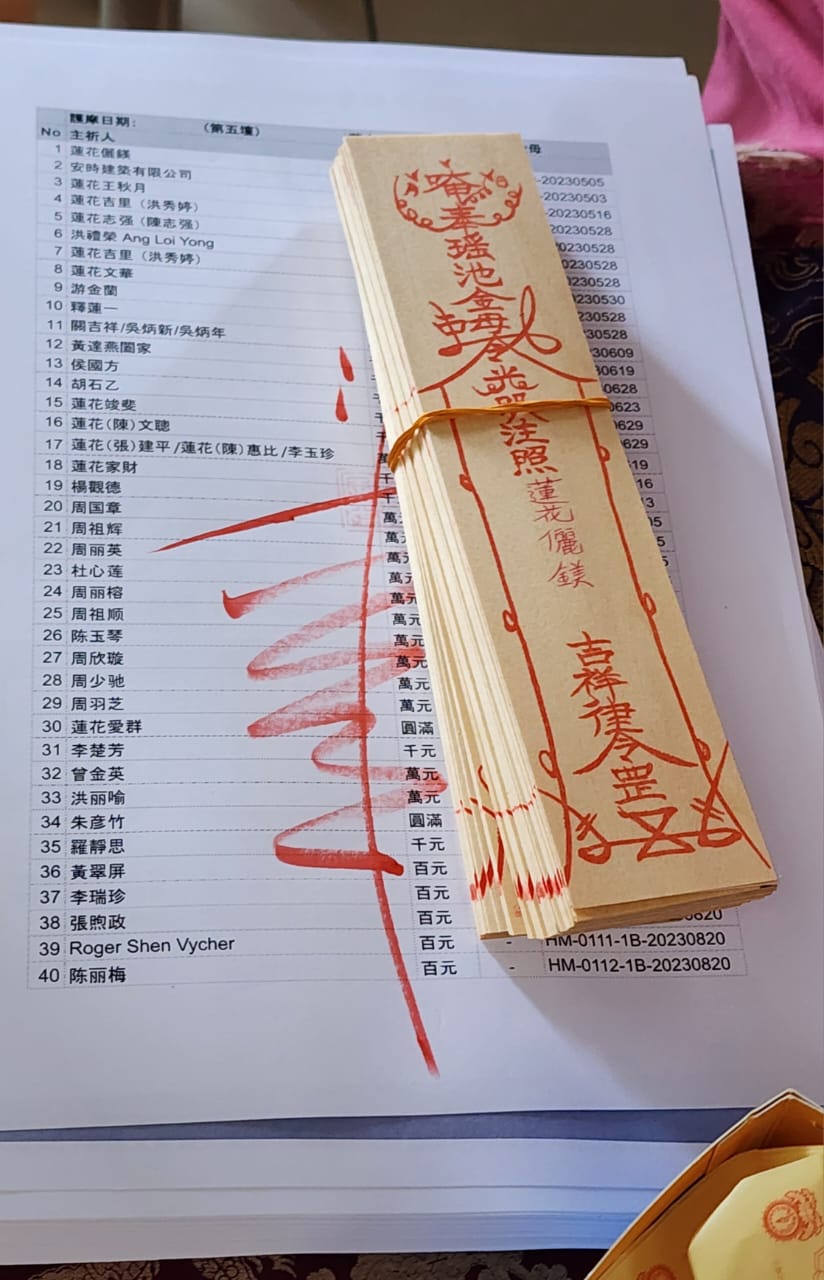 護摩日期: （第五壇）
No 主祈人
1 蓮花儷鎂 -20230505
2 安時建築有限公司 -20230503
3 蓮花王秋月 -20230516
4 蓮花吉里（洪秀婷） 20230528
5 蓮花志强（陳志强） 20230528
6 洪禮榮 Ang Loi Yong 20230528
7 蓮花吉里（洪秀婷） 20230528
8 蓮花文華 20230530
9 游金蘭 230528
10 釋蓮一 230528
11 關吉祥/吳炳新/吳炳年 30609
12 黃達燕闔家 30619
13 侯國方 0628
14 胡石乙 0623
15 蓮花竣斐 629
16 蓮花(陳)文聰 629
17 蓮花(張)建平/蓮花(陳)惠比/李玉珍 19
18 蓮花家財 千 16
19 楊觀德 千
20 周国章 萬元
21 周祖辉 萬
22 周丽英 萬
23 杜心莲 萬元
24 周丽榕 萬元
25 周祖顺 萬元
26 陈玉琴 萬元
27 周欣璇 萬元
28 周少驰 萬元
29 周羽芝 萬元
30 蓮花愛群 圓滿
31 李楚芳 千元
32 曾金英 萬元
33 洪丽喻 萬元
34 朱彦竹 圓滿
35 羅靜思 千元
36 黃翠屏 百元
37 李瑞珍 百元
38 張煦政 百元 0820
39 Roger Shen Vycher 百元 - HM-0111-1B-20230820
40 陈丽梅 百元 - HM-0112-1B-20230820
唵
奉
瑤池金母
令
光
注照
蓮花儷鎂
吉祥律令罡